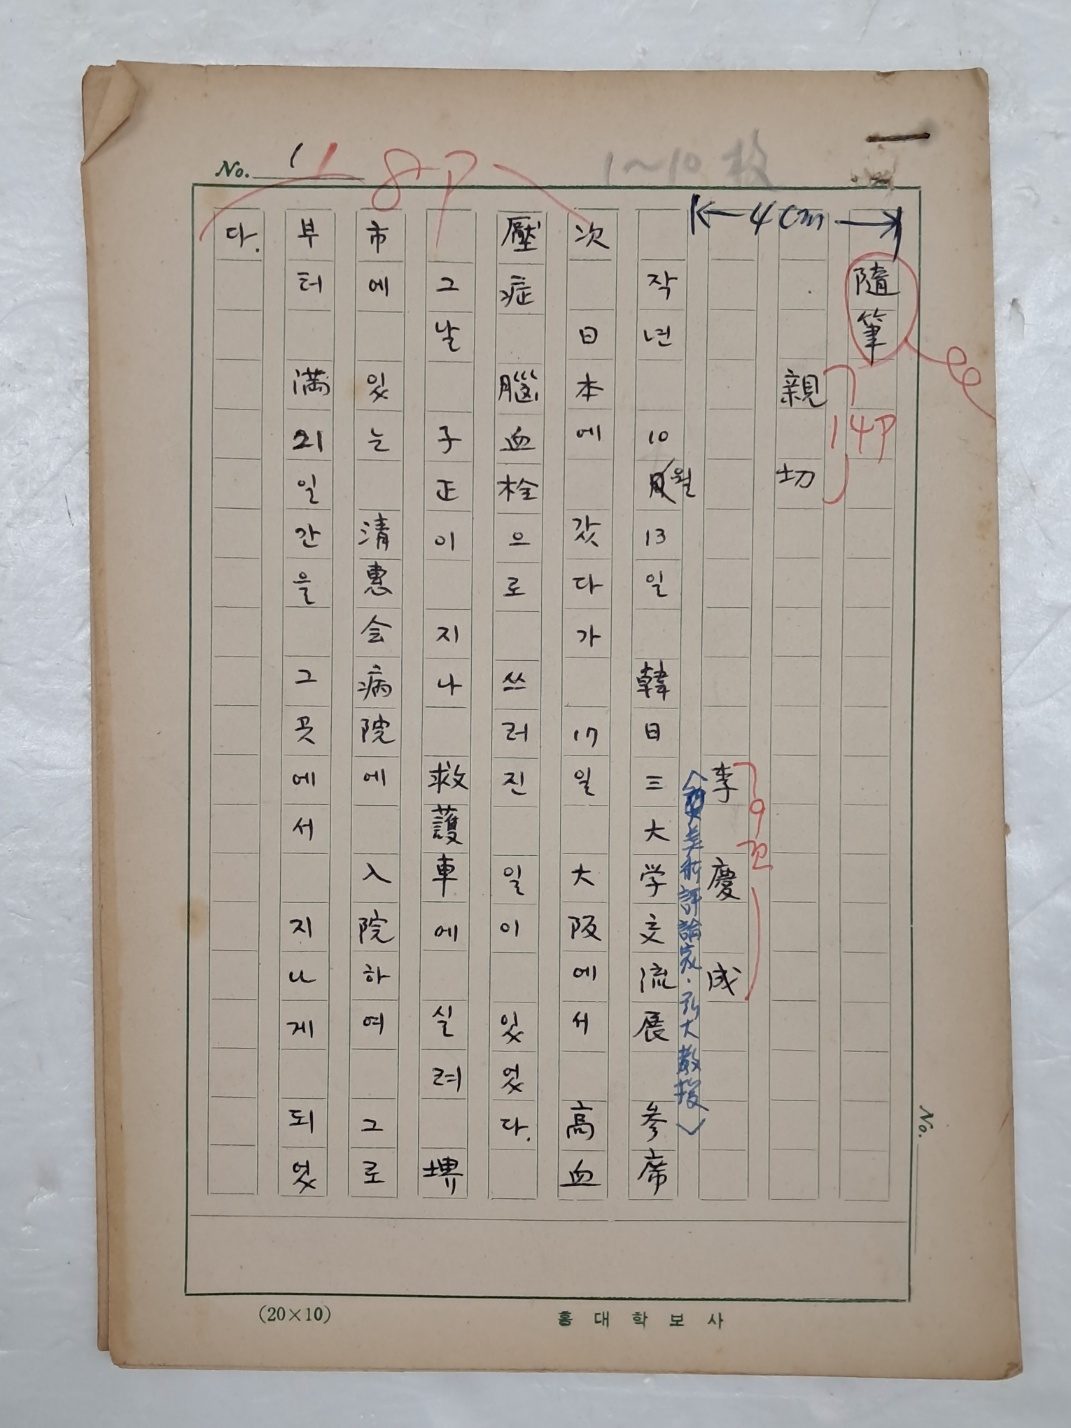 No. 1
8P
1~10 枚
4cm
隨筆
親切
14P
李慶成
9포
美術評論家·弘大教授
작년 10월 13일 韓日三大学交流展 參席
次 日本에 갔다가 17일 大阪에서 高血
壓症 腦血栓으로 쓰러진 일이 있었다.
그날 子正이 지나 救護車에 실려 堺
市에 있는 清惠会病院에 入院하여 그로
부터 満21일간을 그곳에서 지나게 되었
다.
No.
(20×10)
홍대학보사